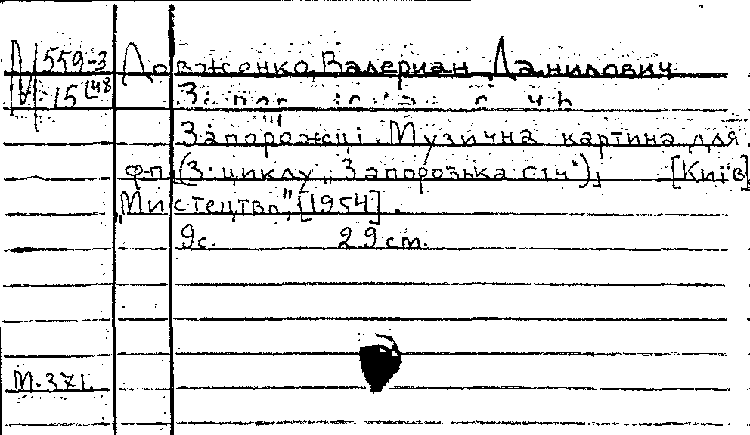 N 559-3 Довженко, Валериан Данилович
V-15148
Запорожці. Музична картина для
фп. (З циклу „Запорозька січ"), [Київ]
„Мистецтво", [1954].
9с. 29 cm.
М.371.